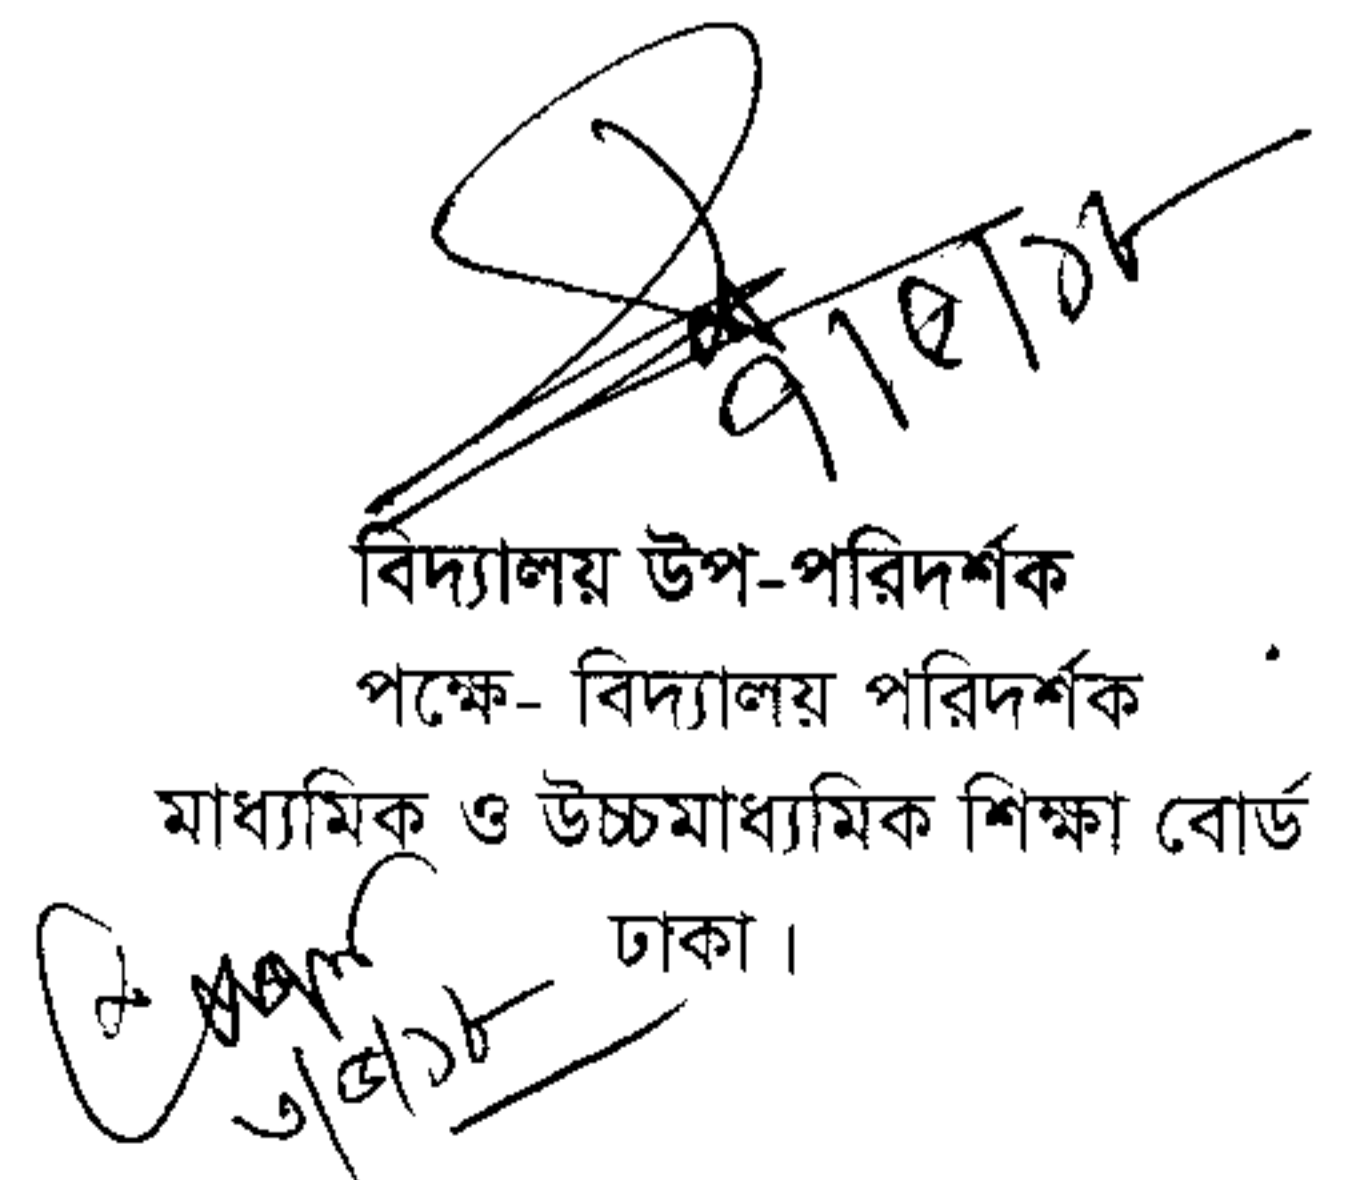 ৭/৫/১৮
বিদ্যালয় উপ-পরিদর্শক
পক্ষে- বিদ্যালয় পরিদর্শক
মাধ্যমিক ও উচ্চমাধ্যমিক শিক্ষা বোর্ড
ঢাকা।
৩/৫/১৮